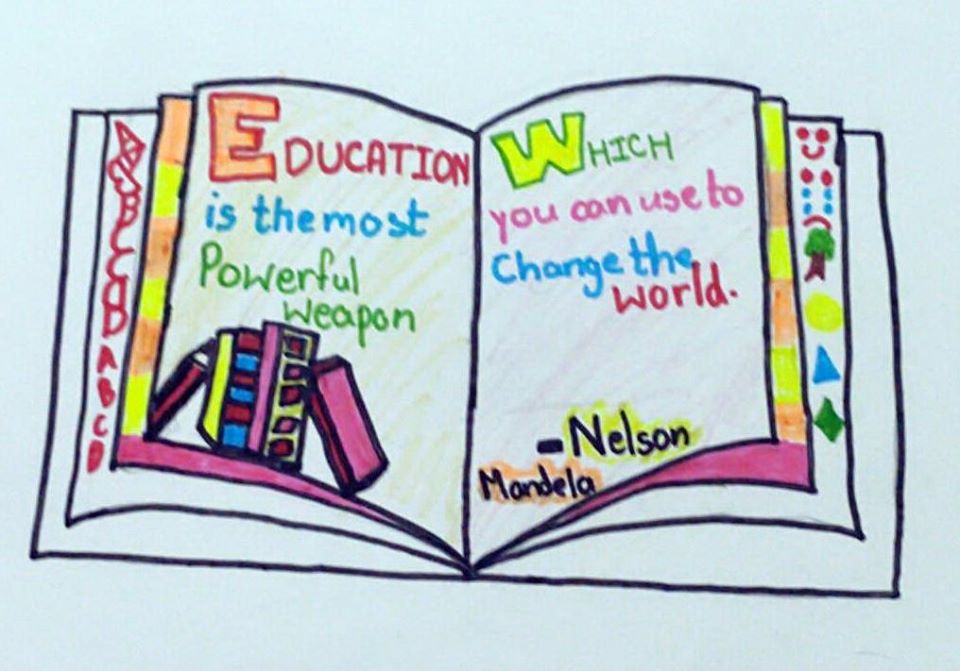 EDUCATION
is the most
Powerful
weapon
WHICH
you can use to
Change the
world.
- Nelson
Mandela
A
B
C
D
A
B
C
D